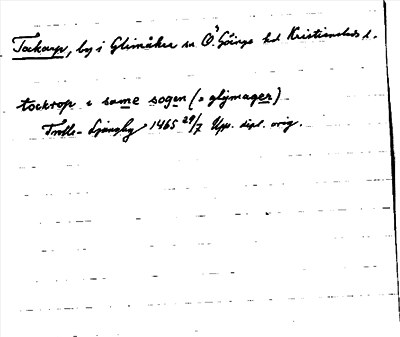 Tockarp, by i Glimåkra sn Ö. Göinge hd Kristianstads l.
tockrop i same sogen (= glymager)
Trolle-Ljungby 1465 29/7 Upps. dipl. orig.